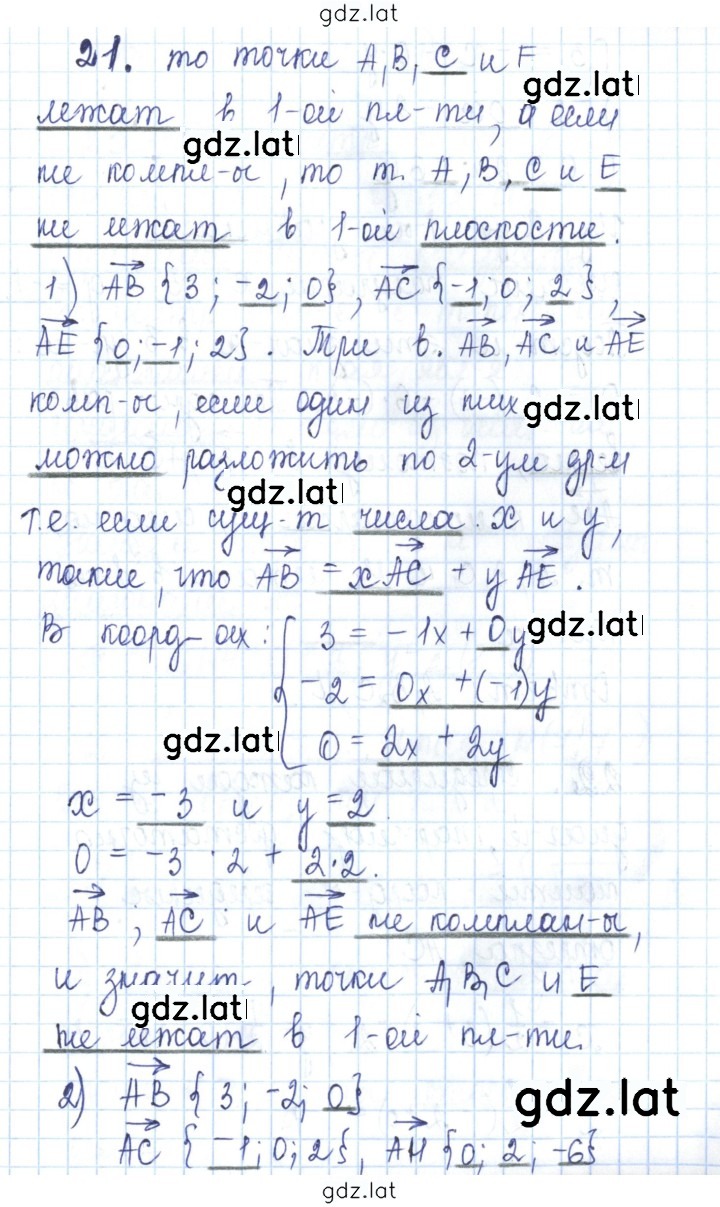 gdz.lat
21. то точки A, B, C и F
gdz.lat
лежат в 1-ой пл-ти, а если
gdz.lat
не компл-ы, то т. A, B, C и E
не лежат в 1-ой плоскости.
1) AB {3; -2; 0}, AC {-1; 0; 2},
AE {0; -1; 2}. Три в. AB, AC и AE
комп-ы, если один из них
gdz.lat
можно разложить по 2-ум др-м
gdz.lat
т.е. если сущ-т числа x и y,
такие, что AB = xAC + yAE.
В коорд-ах: { 3 = -1x + 0y
gdz.lat
-2 = 0x + (-1)y
gdz.lat
0 = 2x + 2y
x = -3 и y = 2
0 = -3 · 2 + 2·2.
AB; AC и AE не комплан-ы,
и значит, точки A, B, C и E
gdz.lat
не лежат в 1-ой пл-ти.
2) AB {3; -2; 0}
gdz.lat
AC {-1; 0; 2}, AH {0; 2; -6}
gdz.lat